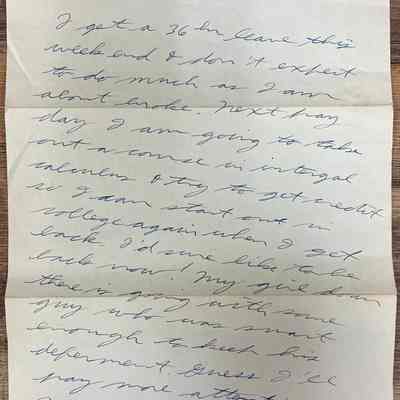 I get a 36 hr leave this
week end & don't expect
to do much as I am
about broke. Next pay
day I am going to take
out a course in intergal
calculus & try to get credit
so I can start out in
college again when I get
back. I'd sure like to be
back now! My girl down
there is going with some
guy who was smart
enough to keep his
deferment. Guess I'll
pay more